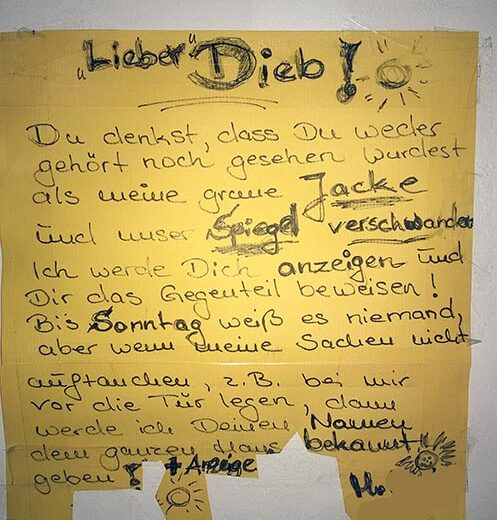 „Lieber" Dieb!
Du denkst, dass Du weder
gehört noch gesehen wurdest
als meine graue Jacke
und unser Spiegel verschwanden
Ich werde Dich anzeigen und
Dir das Gegenteil beweisen!
Bis Sonntag weiß es niemand,
aber wenn meine Sachen nicht
auftauchen, z.B. bei mir
vor die Tür legen, dann
werde ich Deinen Namen
dem ganzen Haus bekannt
geben! + Anzeige